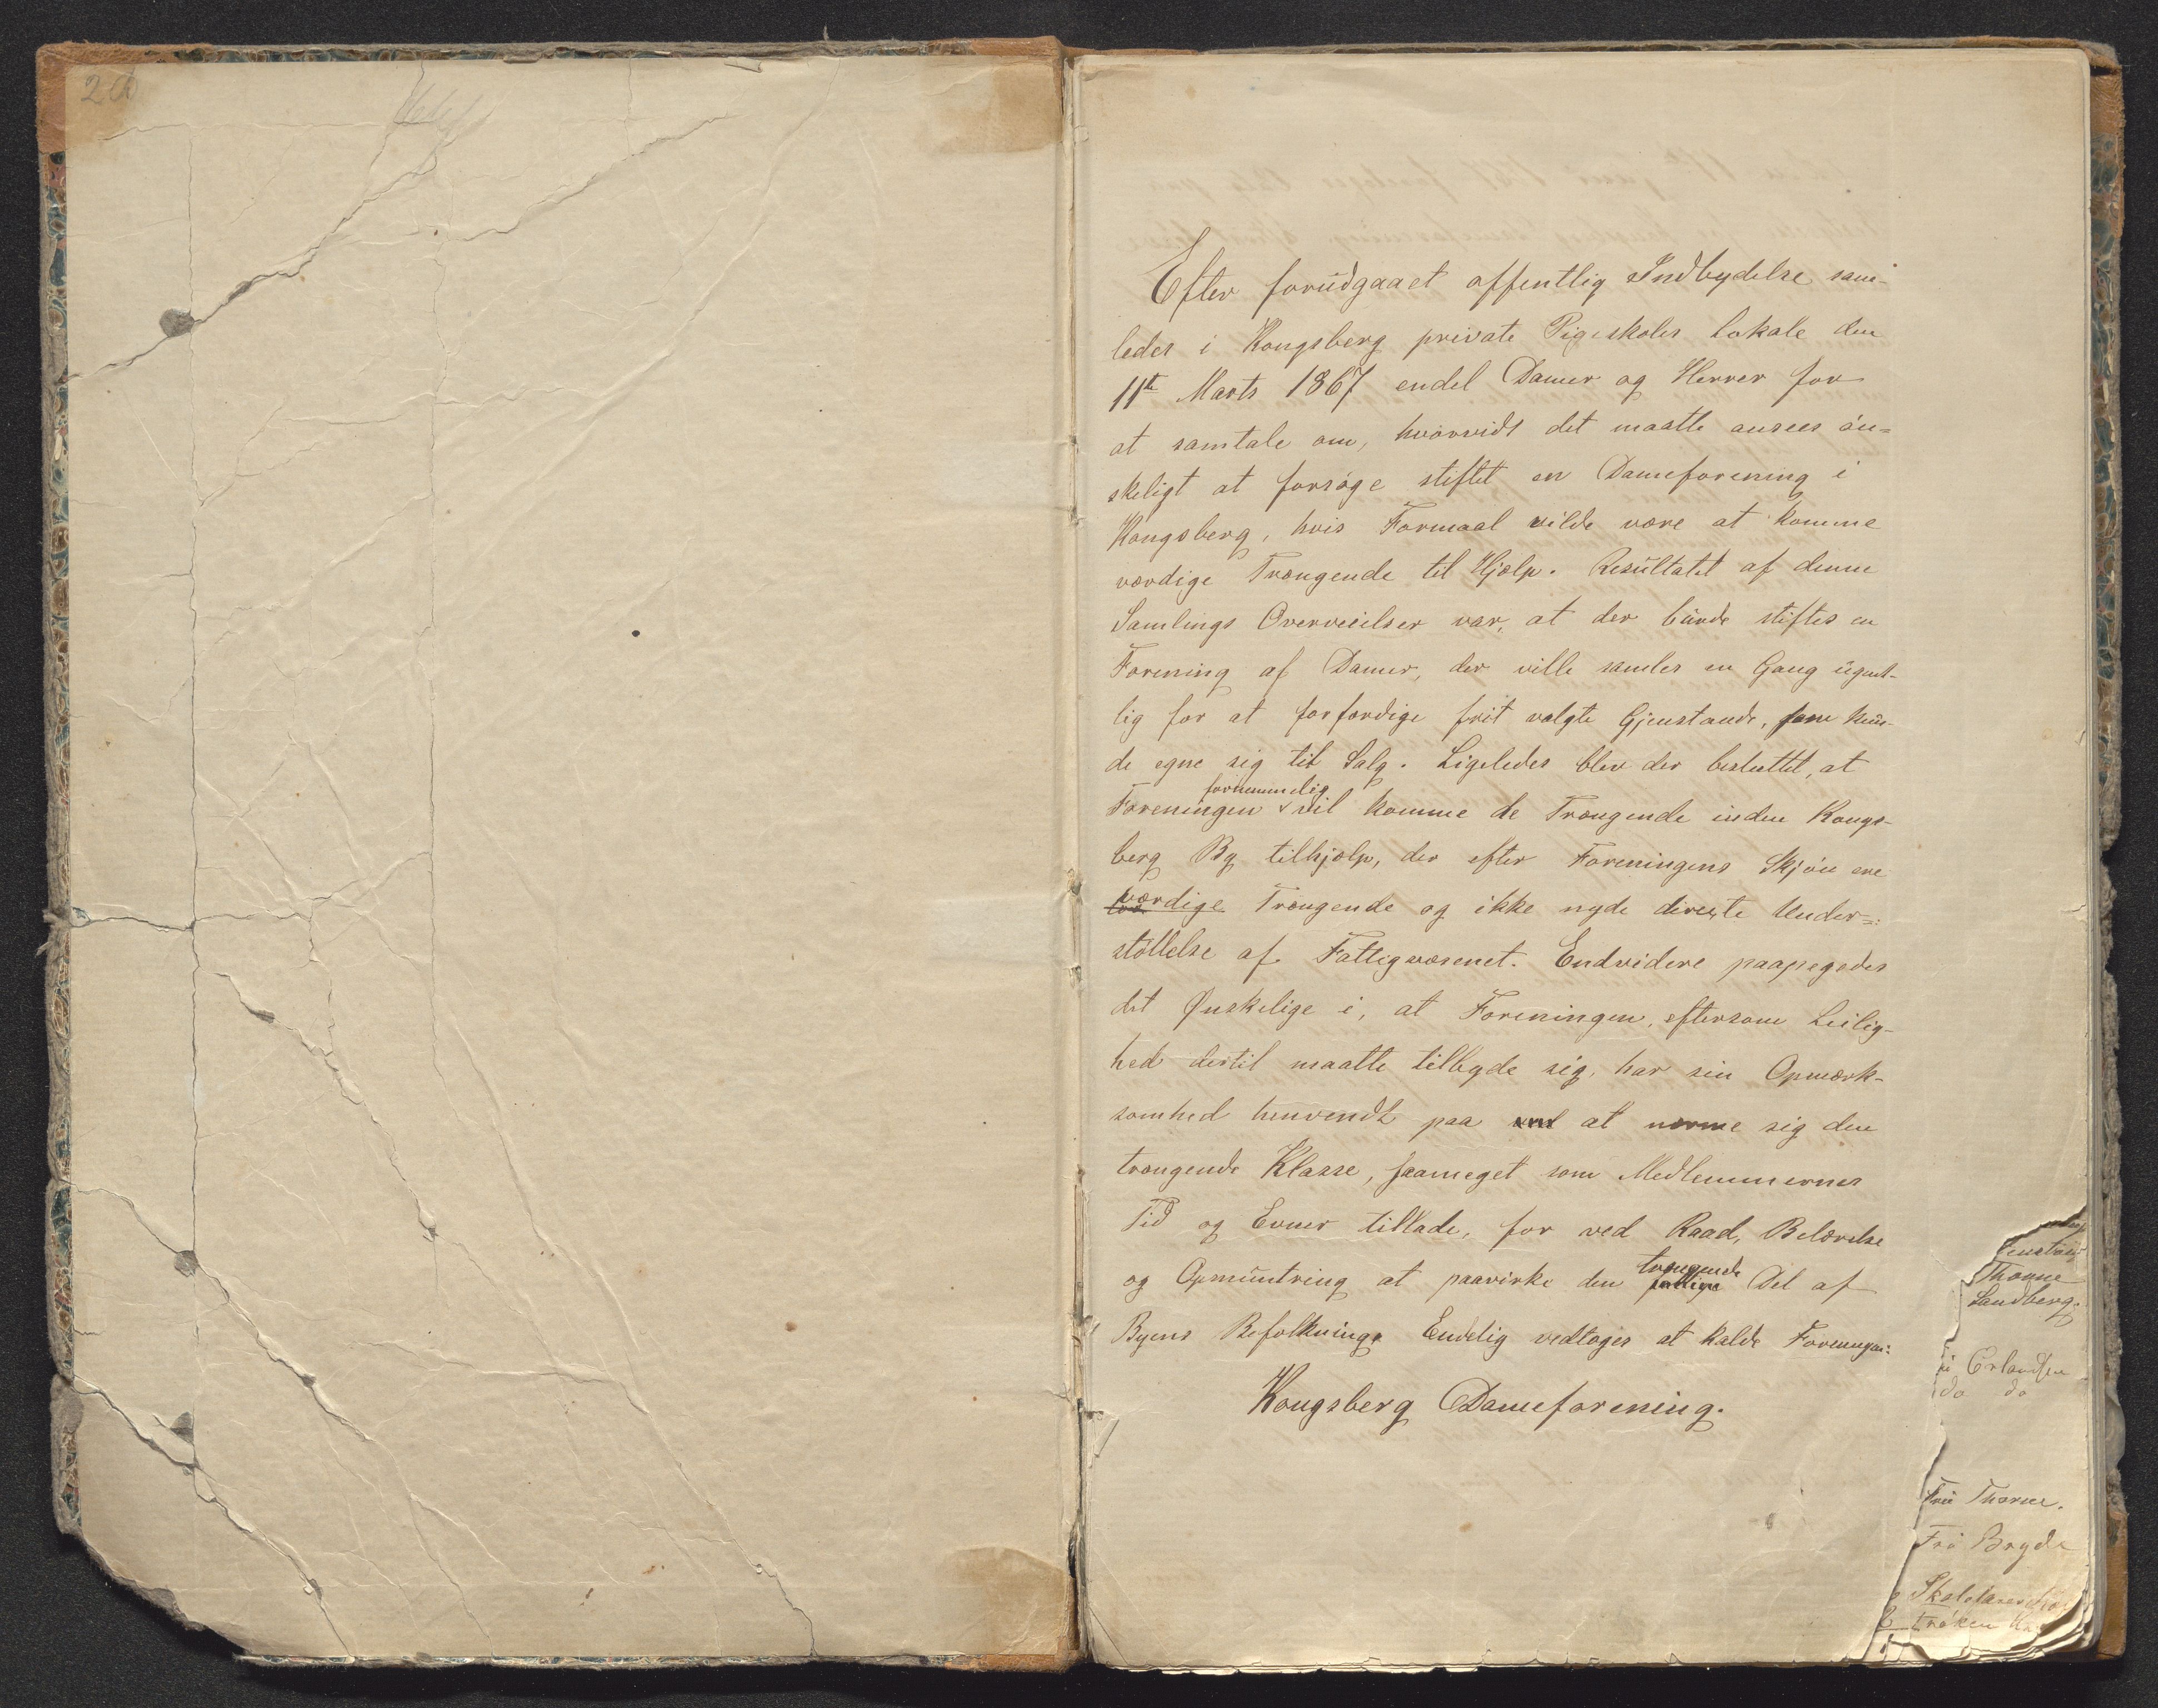 Efter forudgaaet offentlig Indbydelse sam-
ledes i Kongsberg private Pigeskoles Lokale den
11te Marts 1867 endel Damer og Herrer for
at samtale om, hvorvidt det maatte ansees øn=
skeligt at forsøge stiftet en Dameforening i
Kongsberg, hvis Formaal vilde være at komme
værdige Trængende til Hjælp. Resultatet af denne
Samlings Overveielser var, at der burde stiftes en
Forening af Damer, der ville samles en Gang ugent-
lig for at forfærdige frit valgte Gjenstande, som kun-
de egne sig til Salg. Ligeledes blev der besluttet, at
Foreningen fornemmelig vil komme de Trængende inden Kongs-
berg By tilhjælp, der efter Foreningens Skjøn ere
værdige Trængende og ikke nyde directe Under=
støttelse af Fattigvæsenet. Endvidere paapegedes
det Ønskelige i, at Foreningen, eftersom Leilig-
hed dertil maatte tilbyde sig, har sin Opmærk-
somhed henvendt paa ved at nærme sig den
trængende Klasse, saameget som Medlemmernes
Tid og Evner tillade, for ved Raad, Belærelse
og Opmuntring at paavirke den fattige trængende Del af
Byens Befolkning. Endelig vedtoges at kalde Foreningen:
Kongsberg Dameforening.
Thorne
Sandberg.
Erlandsen
do do
Fru Thorne.
Frö Bryde
Fröken